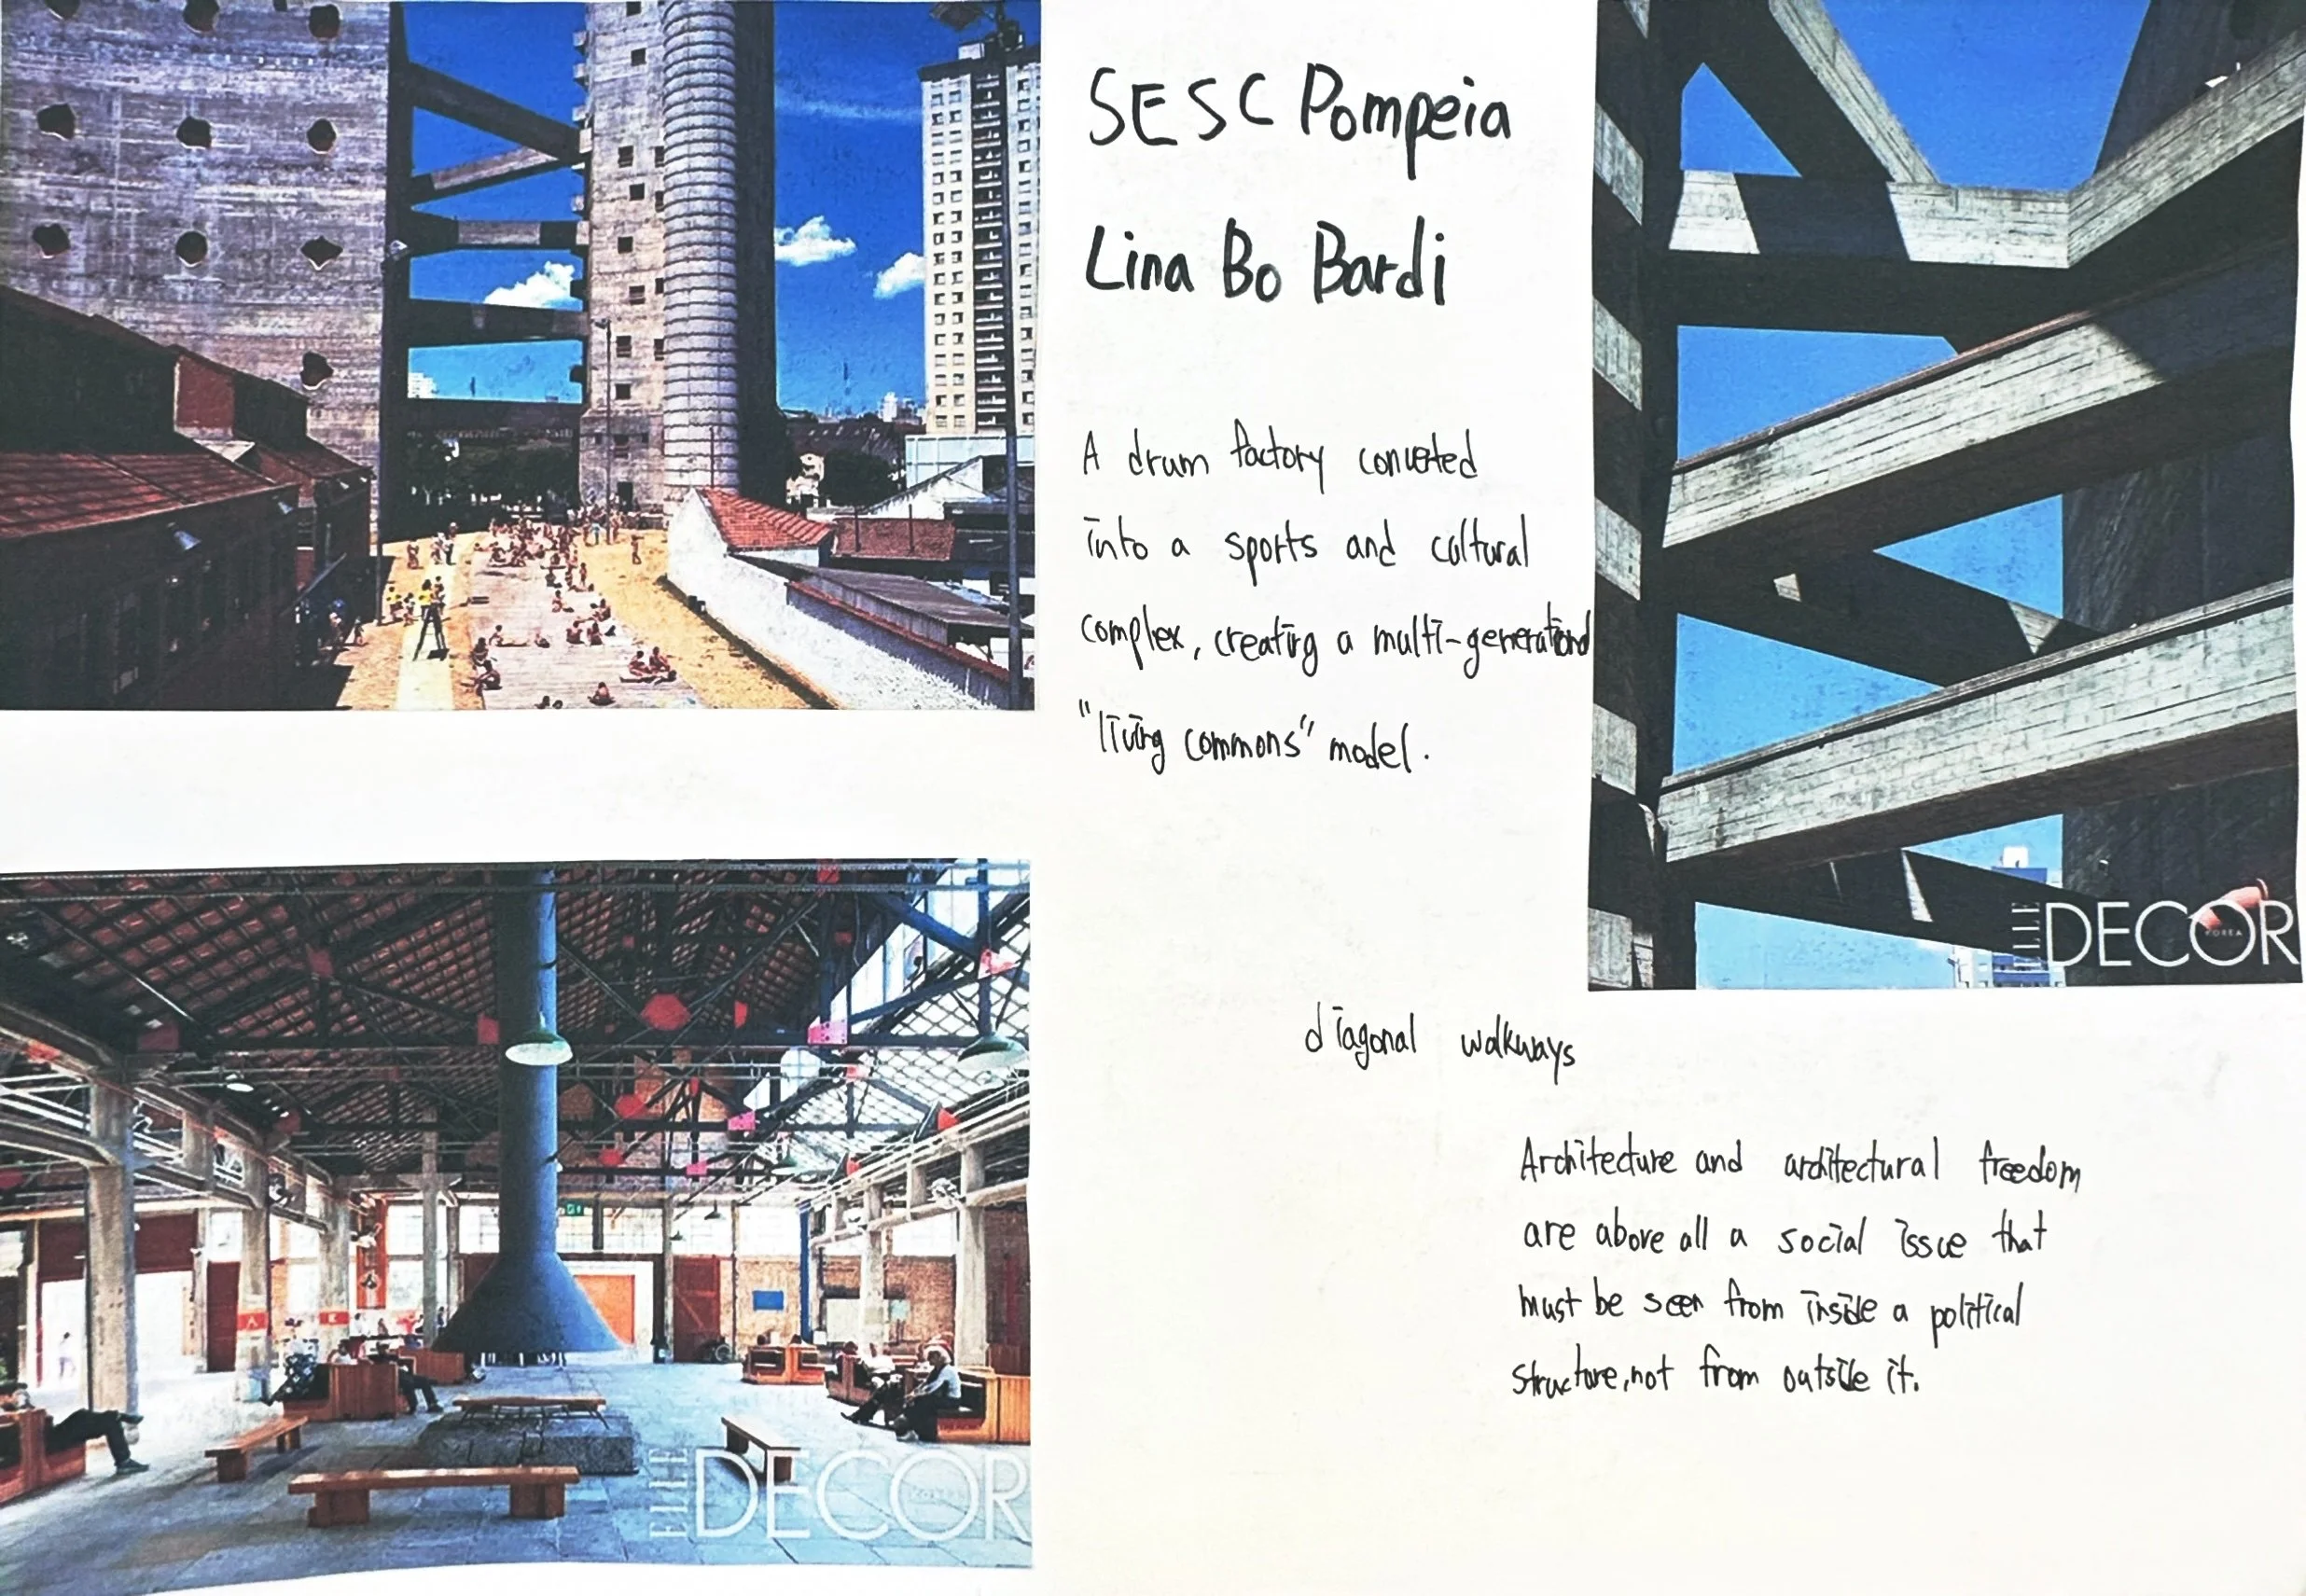 SESC Pompeia
Lina Bo Bardi
A drum factory converted
into a sports and cultural
complex, creating a multi-generational
"living commons" model.
ELLE DECOR
KOREA
diagonal walkways
Architecture and architectural freedom
are above all a social issue that
must be seen from inside a political
structure, not from outside it.
ELLE DECOR